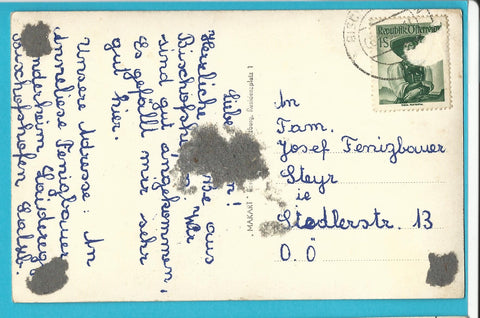 Lieben!
Herzliche aus
Bischofsh Wir
sind gut angekommen,
Es gefällt mir sehr
gut hier.
Unsere Adresse: An
Anneliese Fenizbauer
Kinderheim
Bischofshofen Salzb.
MAKART
Residenzplatz 1
Republik Österreich
1S
An
Fam.
Josef Fenizbauer
Steyr
ie
Siedlerstr. 13
O.Ö